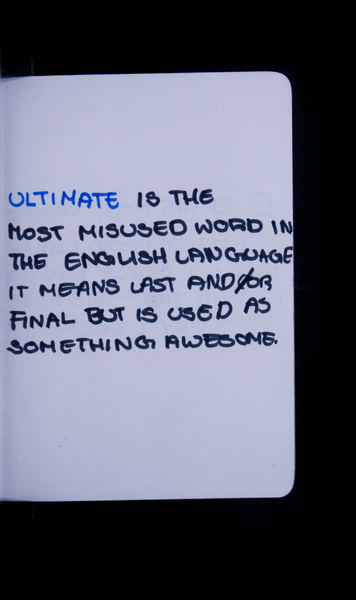 ULTIMATE IS THE
MOST MISUSED WORD IN
THE ENGLISH LANGUAGE
IT MEANS LAST AND/OR
FINAL BUT IS USED AS
SOMETHING AWESOME.